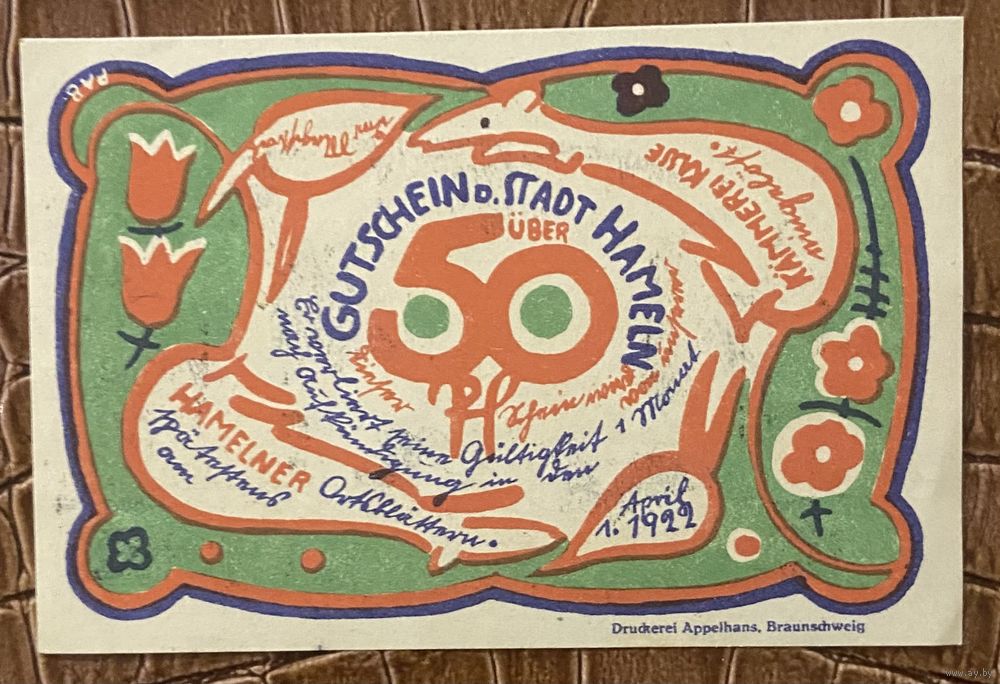 P.A.B.
GUTSCHEIN D. STADT HAMELN
ÜBER
50
Pf
dieser Schein wird von unserer
KÄMMEREI KASSE
eingelöst.
Er verliert seine Gültigkeit 1 Monat
nach Aufkündigung in den
HAMELNER Ortsblättern.
spätestens
am
1. April
1922
Der Magistrat
Druckerei Appelhans, Braunschweig
www.ay.by